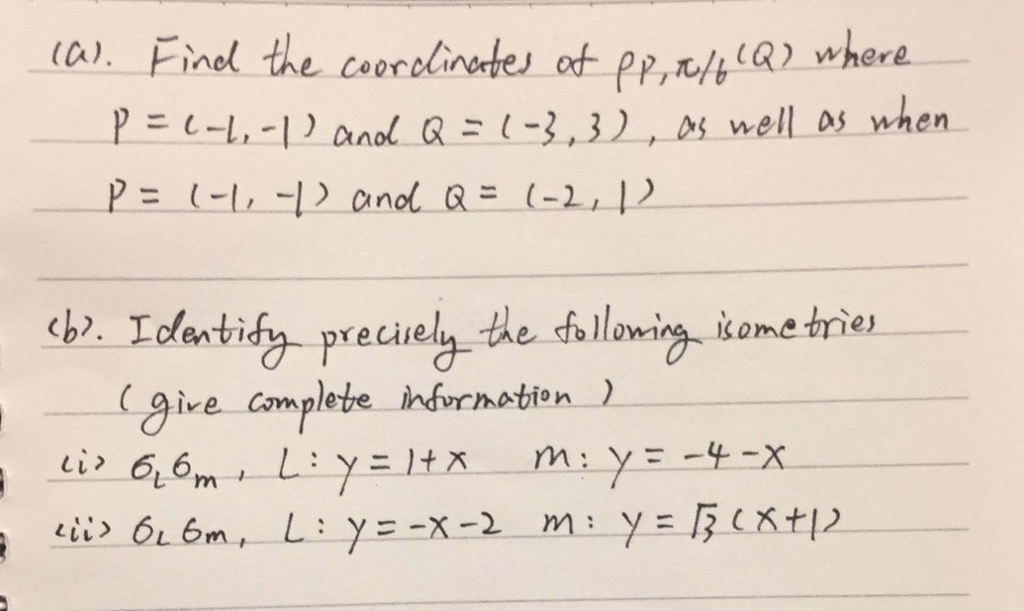 (a). Find the coordinates of ρP, π/6 (Q) where
P = (-1, -1) and Q = (-3, 3), as well as when
P = (-1, -1) and Q = (-2, 1)
(b). Identify precisely the following isometries
(give complete information)
(i) σL σm, L: y = 1 + x m: y = -4 - x
(ii) σL σm, L: y = -x - 2 m: y = √3 (x + 1)